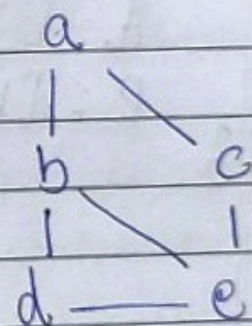 a
b c
d e